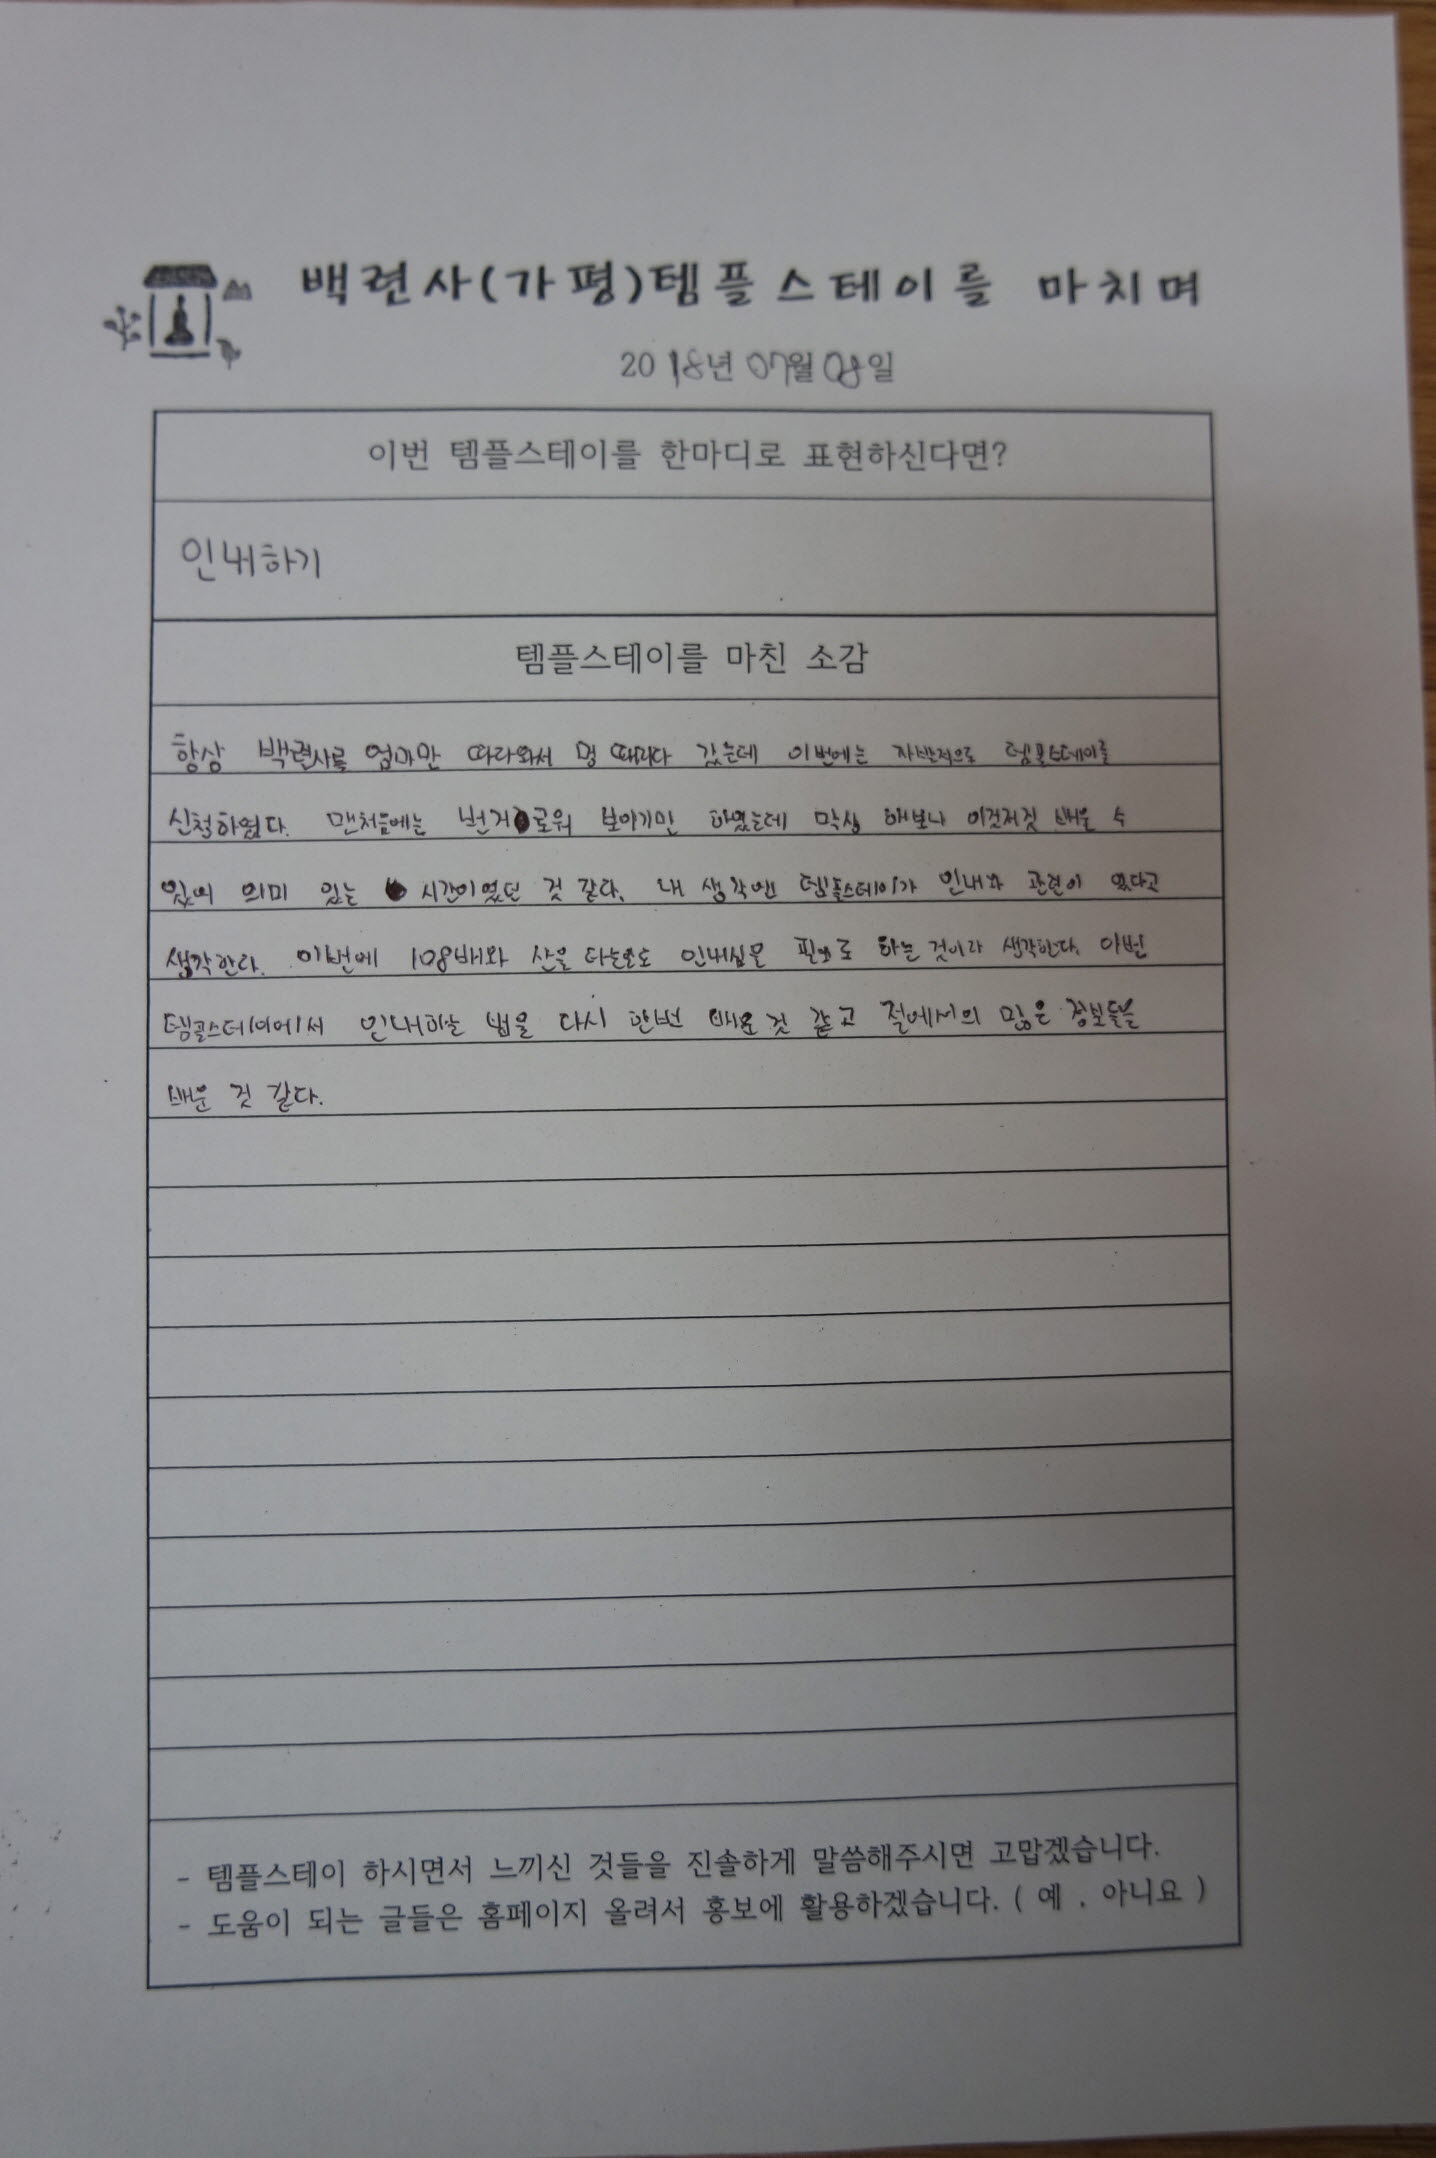 백련사(가평)템플스테이를 마치며
2018년 07월 08일
이번 템플스테이를 한마디로 표현하신다면?
인내하기
템플스테이를 마친 소감
항상 백련사를 엄마만 따라와서 멍 때리다 갔는데 이번에는 자발적으로 템플스테이를
신청하였다. 맨처음에는 번거로워 보이기만 하였는데 막상 해보니 이것저것 배울 수
있어 의미 있는 시간이었던 것 같다. 내 생각엔 템플스테이가 인내와 관련이 있다고
생각한다. 이번에 108배와 산을 인내심을 필요로 하는 것이라 생각한다. 이번
템플스테이에서 인내하는 법을 다시 한번 배운 것 같고 절에서의 많은 정보들을
배운 것 같다.
- 템플스테이 하시면서 느끼신 것들을 진솔하게 말씀해주시면 고맙겠습니다.
- 도움이 되는 글들은 홈페이지 올려서 홍보에 활용하겠습니다. ( 예 , 아니요 )